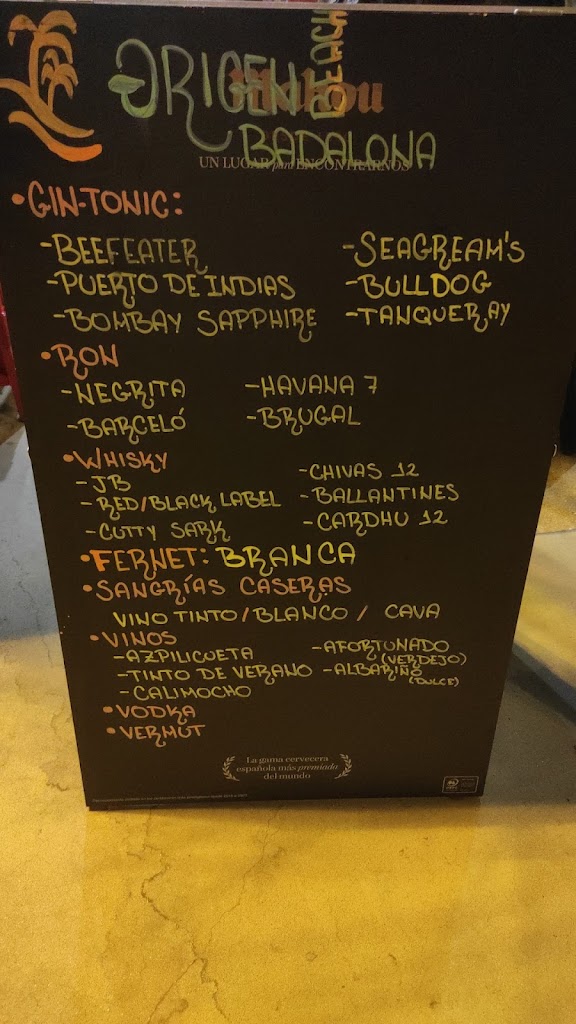 ORIGEN BEACH
Mahou
BADALONA
UN LUGAR para ENCONTRARNOS
•GIN-TONIC:
-BEEFEATER
-SEAGREAM'S
-PUERTO DE INDIAS
-BULLDOG
-BOMBAY SAPPHIRE
-TANQUERAY
•RON
-NEGRITA
-HAVANA 7
-BARCELÓ
-BRUGAL
•WHISKY
-JB
-CHIVAS 12
-RED/BLACK LABEL
-BALLANTINES
-CUTTY SARK
-CARDHU 12
•FERNET: BRANCA
•SANGRÍAS CASERAS
VINO TINTO/BLANCO / CAVA
•VINOS
-AZPILICUETA
-AFORTUNADO
(VERDEJO)
-TINTO DE VERANO
-ALBARIÑO
(DULCE)
-CALIMOCHO
•VODKA
•VERMUT
La gama cervecera
española más premiada
del mundo